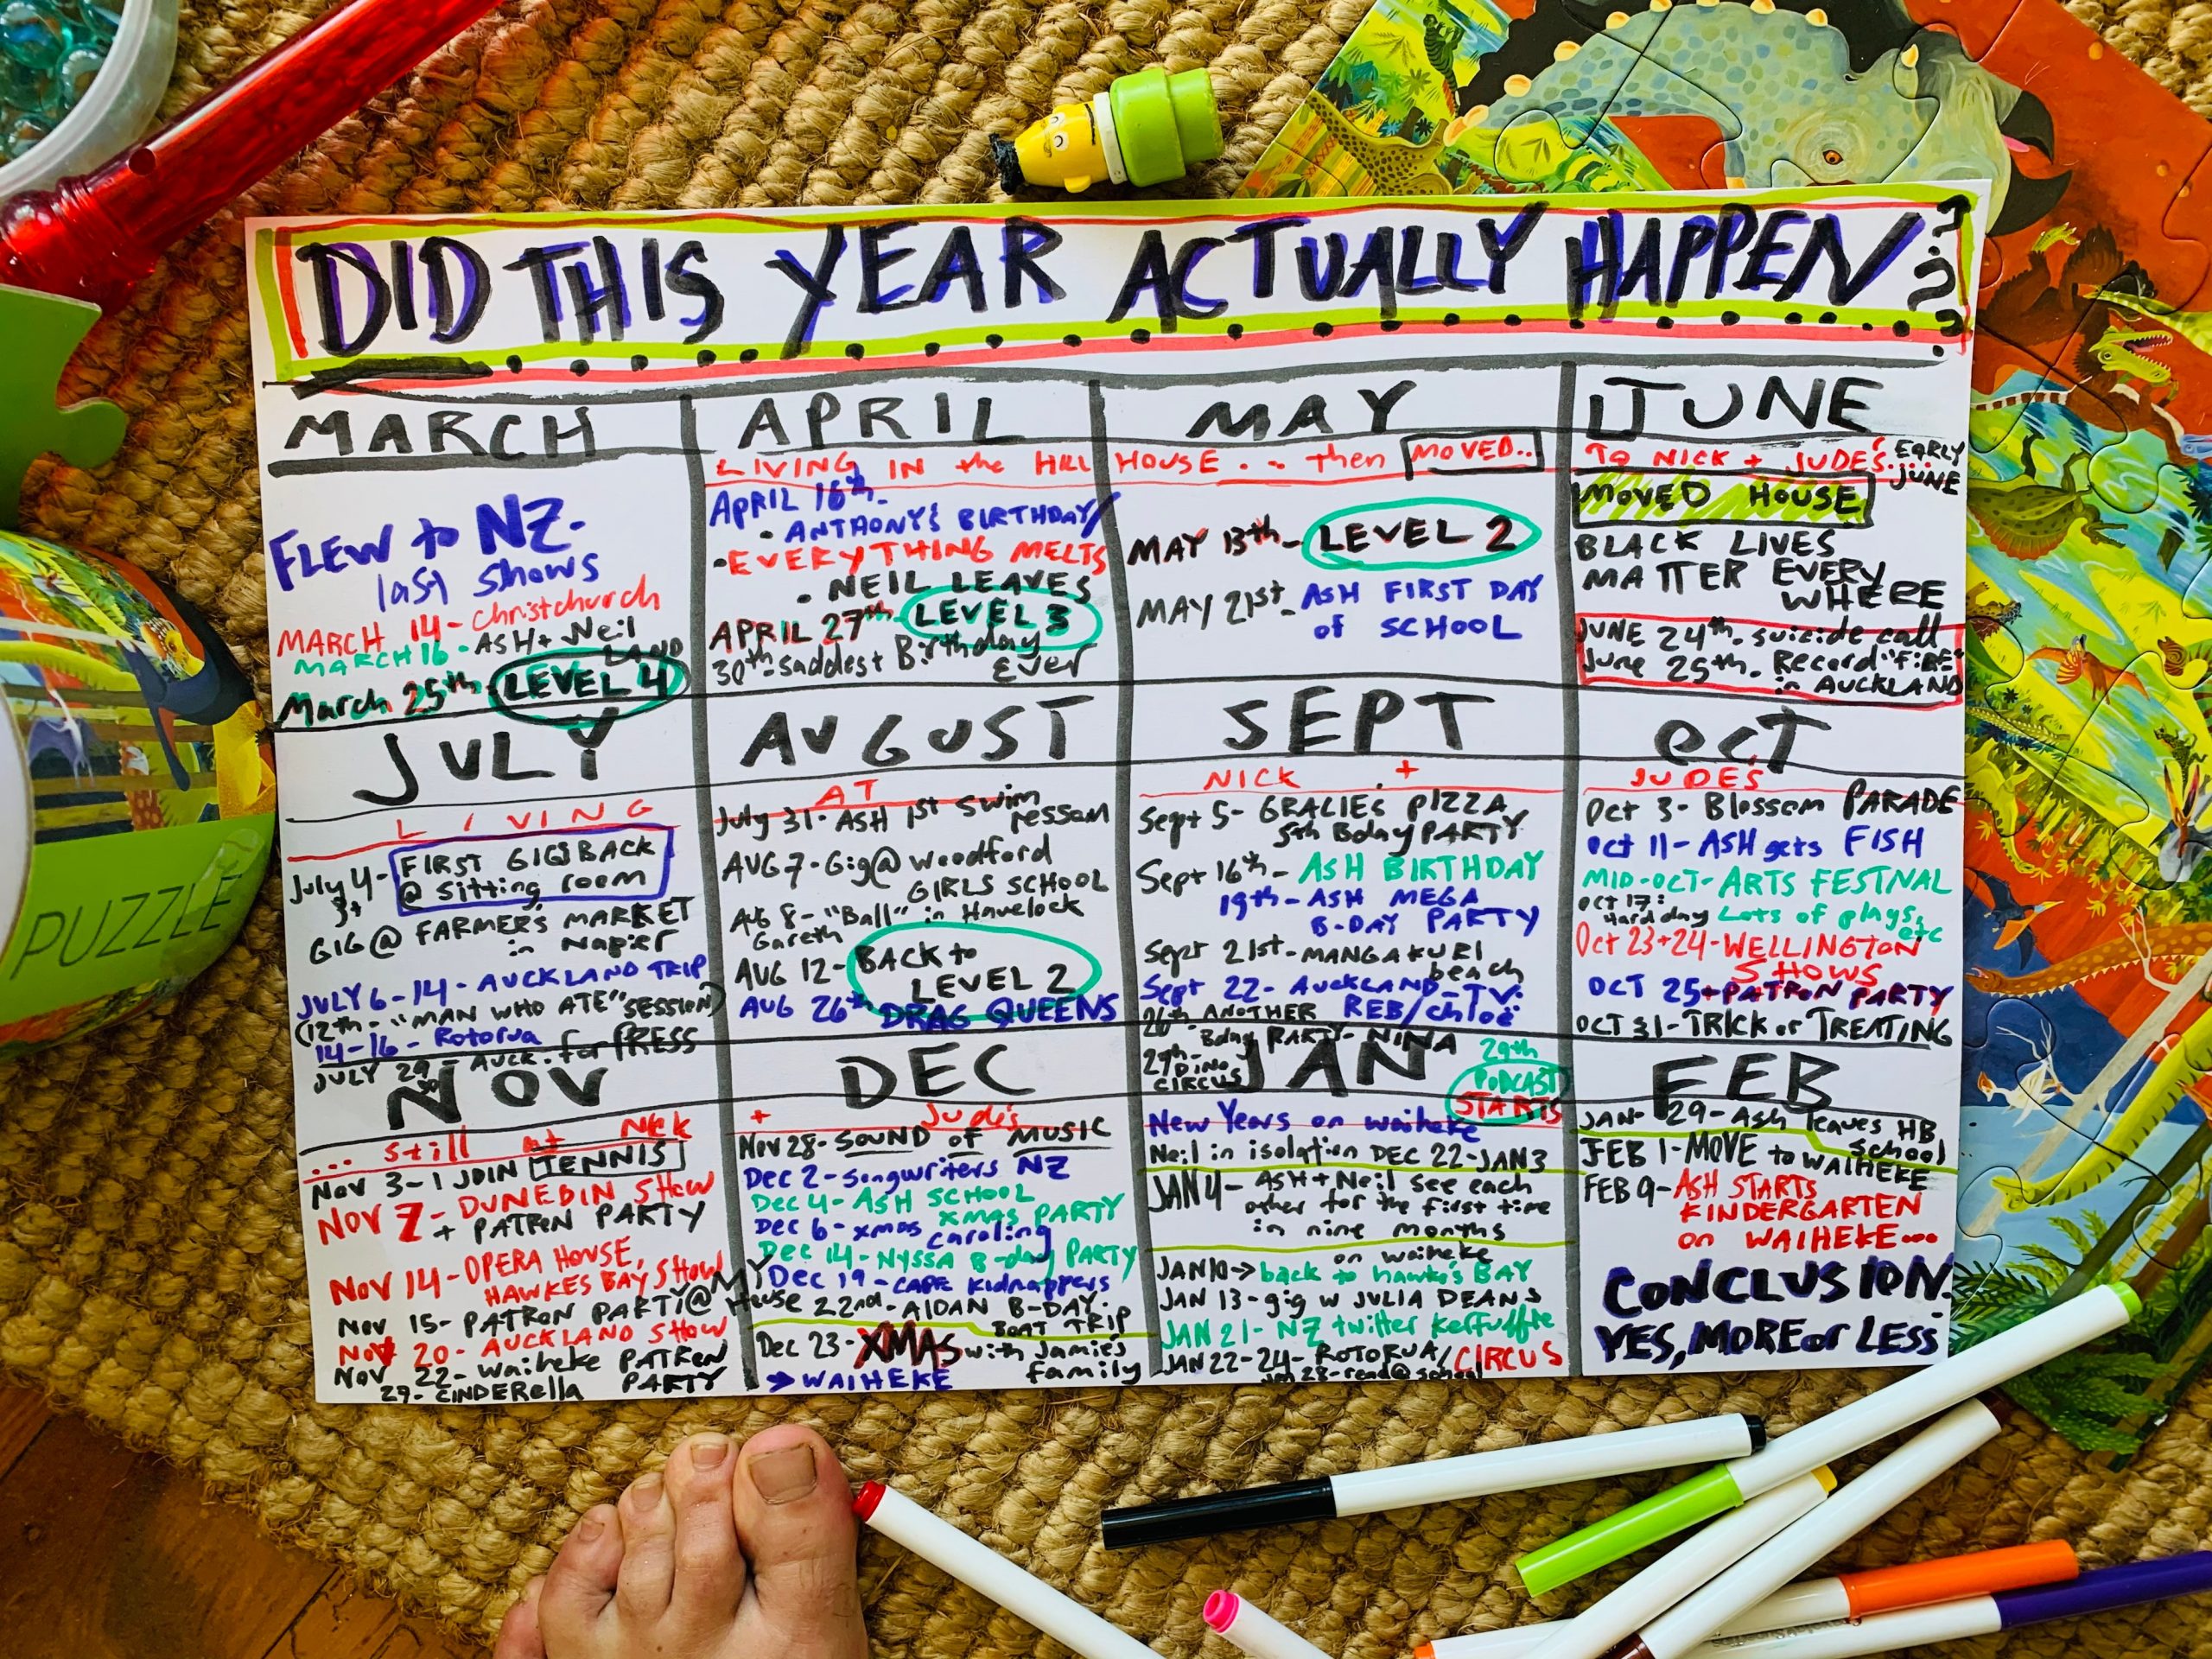 DID THIS YEAR ACTUALLY HAPPEN???
MARCH
FLEW to NZ-
last shows
MARCH 14 - Christchurch
MARCH 16 - ASH + Neil
LAND
March 25th - LEVEL 4
APRIL
LIVING IN the HILL HOUSE... then MOVED..
APRIL 16th -
• ANTHONY'S BIRTHDAY
• EVERYTHING MELTS
• NEIL LEAVES
APRIL 27th - LEVEL 3
30th - saddest Birthday
EVER
MAY
MAY 13th - LEVEL 2
MAY 21st - ASH FIRST DAY
of SCHOOL
JUNE
TO NICK + JUDE'S... EARLY
JUNE
MOVED HOUSE
BLACK LIVES
MATTER EVERY
WHERE
JUNE 24th - suicide call
June 25th - Record "FIRE"
in AUCKLAND
JULY
LIVING
July 4 - FIRST GIGS BACK
@ sitting room
GIG @ FARMERS MARKET
in Napier
JULY 6-14 - AUCKLAND TRIP
(12th - "MAN WHO ATE" SESSION)
14-16 - Rotorua
JULY 29 - AUCK. for PRESS
AUGUST
AT
July 31 - ASH 1st swim
lesson
AUG 7 - Gig @ Woodford
GIRLS SCHOOL
AUG 8 - "Ball" in Havelock
Gareth
AUG 12 - BACK to
LEVEL 2
AUG 26th DRAG QUEENS
SEPT
NICK +
Sept 5 - GRACIE'S PIZZA
5th Bday PARTY
Sept 16th - ASH BIRTHDAY
19th - ASH MEGA
B-DAY PARTY
Sept 21st - MANGAKURI
beach
Sept 22 - AUCKLAND - TV:
REB/Chloë
26th ANOTHER
Bday PARTY - NINA
29th - DINO
CIRCUS
OCT
JUDE'S
Oct 3 - Blossom PARADE
Oct 11 - ASH gets FISH
MID-OCT - ARTS FESTIVAL
OCT 17: Hard day Lots of plays, etc
Oct 23+24 - WELLINGTON
SHOWS
OCT 25 + PATRON PARTY
OCT 31 - TRICK or TREATING
NOV
... still at Nick
Nov 3 - I JOIN TENNIS
NOV 7 - DUNEDIN SHOW
+ PATRON PARTY
NOV 14 - OPERA HOUSE,
HAWKES BAY SHOW
NOV 15 - PATRON PARTY @ MY House
NOV 20 - AUCKLAND SHOW
NOV 22 - Waiheke PATRON
PARTY
29 - CINDERella
DEC
+ Jude's
Nov 28 - SOUND OF MUSIC
Dec 2 - Songwriters NZ
Dec 4 - ASH SCHOOL
XMAS PARTY
Dec 6 - xmas caroling
Dec 14 - NYSSA B-day PARTY
Dec 19 - CAPE Kidnappers
22nd - AIDAN B-DAY.
BOAT TRIP
Dec 23 - XMAS with Jamie's
family
→ WAIHEKE
JAN
29th
PODCAST
STARTS
New Years on waiheke
Neil in isolation DEC 22-JAN 3
JAN 4 - ASH + Neil see each
other for the first time
in nine months
on waiheke
JAN 10 → back to hawke's BAY
JAN 13 - gig w JULIA DEANS
JAN 21 - NZ twitter Kerfuffle
JAN 22-24 - ROTORUA/CIRCUS
Jan 28 - read @ school
FEB
JAN 29 - Ash leaves HB
School
FEB 1 - MOVE to WAIHEKE
FEB 9 - ASH STARTS
KINDERGARTEN
on WAIHEKE...
CONCLUSION:
YES, MORE or LESS.
PUZZLE